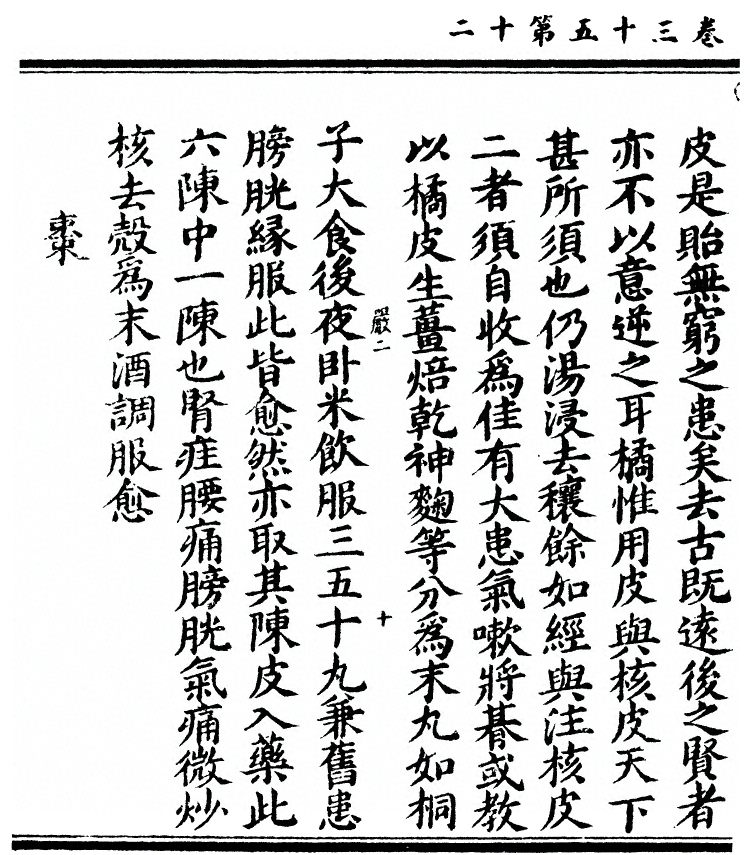 卷三十五第十二
皮是貽無窮之患矣去古既遠後之賢者
亦不以意逆之耳橘惟用皮與核皮天下
甚所須也仍湯浸去穰餘如經與注核皮
二者須自收爲佳有大患氣嗽將朞或教
以橘皮生薑焙乾神麴等分爲末丸如桐
嚴二
十
子大食後夜卧米飲服三五十丸兼舊患
膀胱緣服此皆愈然亦取其陳皮入藥此
六陳中一陳也腎疰腰痛膀胱氣痛微炒
核去殼爲末酒調服愈
棗